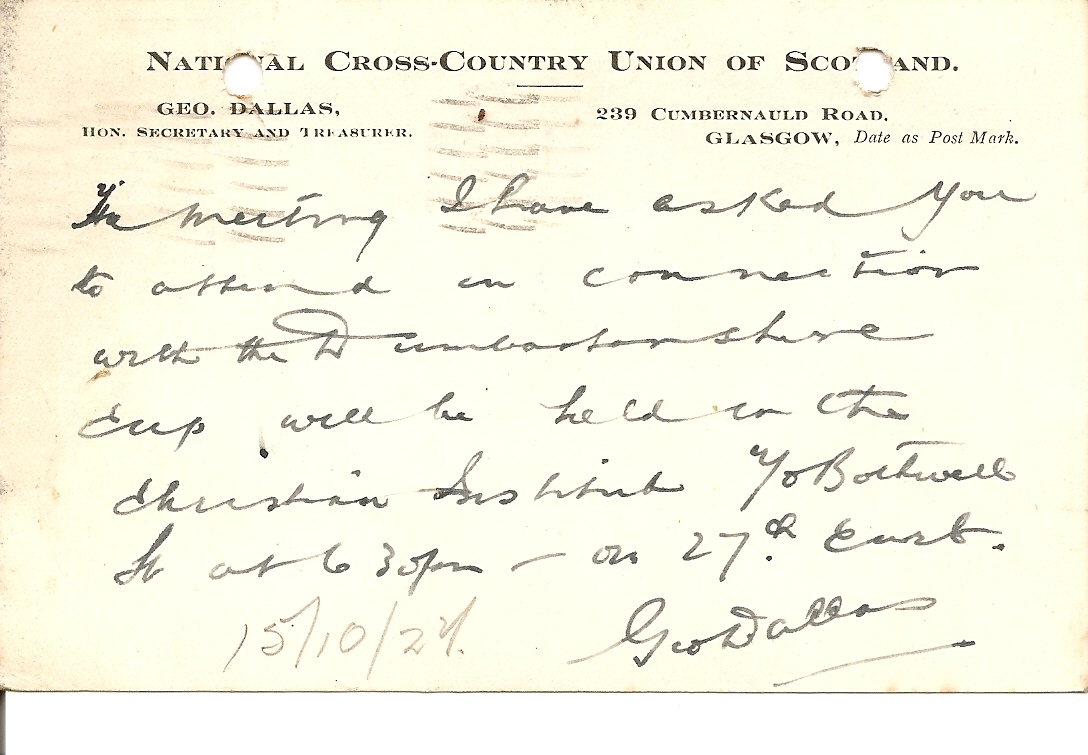 NATIONAL CROSS-COUNTRY UNION OF SCOTLAND.
GEO. DALLAS,
HON. SECRETARY AND TREASURER.
239 CUMBERNAULD ROAD,
GLASGOW, Date as Post Mark.
The meeting I have asked you
to attend in connection
with the Dumbartonshire
Cup will be held in the
Christian Institute 70 Bothwell
St at 6 30pm – on 27th Curt.
Geo Dallas
15/10/24.